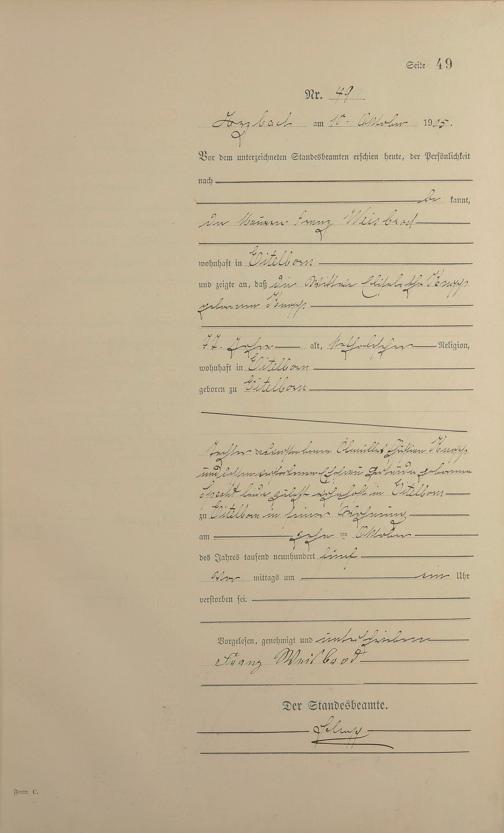 Seite 49
Nr. 49
am 10. Oktober 1905.
Vor dem unterzeichneten Standesbeamten erschien heute, der Persönlichkeit
nach
be kannt,
der Maurer Franz Weisbrod
wohnhaft in Eitelborn
und zeigte an, daß die Wittwe Elisabetha Knopp
geborene Knopp
77 Jahre alt, katholischer Religion,
wohnhaft in Eitelborn
geboren zu Eitelborn
Tochter
und
zuletzt wohnhaft in Eitelborn
zu Eitelborn in seiner Wohnung
am Oktober
des Jahres tausend neunhundert fünf
mittags um ein Uhr
verstorben sei.
Vorgelesen, genehmigt und unterschrieben
Franz Weisbrod
Der Standesbeamte.
Form C.